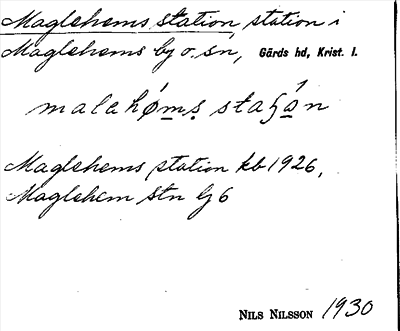 Maglehems station station i
Maglehems by o. sn, Gärds hd, Krist. l.
malahǿmṣ staʒán
Maglehems station kb 1926,
Maglehem Stn Lj 6
NILS NILSSON 1930